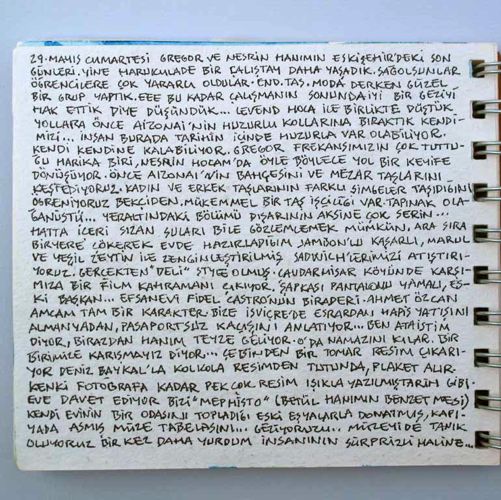 29. MAYIS CUMARTESİ GREGOR VE NESRİN HANIMIN ESKİŞEHİR'DEKİ SON
GÜNLERİ. YİNE HARUKULADE BİR ÇALIŞTAY DAHA YAŞADIK. SAĞOLSUNLAR
ÖĞRENCİLERE ÇOK YARARLI OLDULAR. END. TAS. MODA DERKEN GÜZEL
BİR GRUP YAPTIK. EEE BU KADAR ÇALIŞMANIN SONUNDA İYİ BİR GEZİYİ
HAK ETTİK DİYE DÜŞÜNDÜK... LEVEND HOCA İLE BİRLİKTE DÜŞTÜK
YOLLARA ÖNCE AİZONAİ'NİN HUZURLU KOLLARINA BIRAKTIK KENDİ-
MİZİ... İNSAN BURADA TARİHİN İÇİNDE HUZURLA VAR OLABİLİYOR.
KENDİ KENDİNE KALABİLİYOR. GREGOR FREKANSIMIZIN ÇOK TUTTU-
ĞU HARİKA BİRİ, NESRİN HOCAM'DA ÖYLE BÖYLECE YOL BİR KEYİFE
DÖNÜŞÜYOR. ÖNCE AİZONAİ'NİN BAHÇESİNİ VE MEZAR TAŞLARINI
KEŞFEDİYORUZ. KADIN VE ERKEK TAŞLARININ FARKLI SİMGELER TAŞIDIĞINI
ÖĞRENİYORUZ BEKÇİDEN. MÜKEMMEL BİR TAŞ İŞÇİLİĞİ VAR. TAPINAK OLA-
ĞANÜSTÜ... YERALTINDAKİ BÖLÜMÜ DIŞARININ AKSİNE ÇOK SERİN...
HATTA İÇERİ SIZAN SULARI BİLE GÖZLEMLEMEK MÜMKÜN. ARA SIRA
BİRYERE ÇÖKEREK EVDE HAZIRLADIĞIM JAMBON'LU KAŞARLI, MARUL
VE YEŞİL ZEYTİN İLE ZENGİNLEŞTİRİLMİŞ SADWİCH'LERİMİZİ ATIŞTIRI-
YORUZ. GERÇEKTEN "DELİ" STYLE OLMUŞ. ÇAVDARHİSAR KÖYÜNDE KARŞI-
MIZA BİR FİLM KAHRAMANI ÇIKIYOR. ŞAPKASI PANTALONU YAMALI, ES-
Kİ BAŞKAN... EFSANEVİ FİDEL CASTRO'NUN BİRADERİ. AHMET ÖZCAN
AMCAM TAM BİR KARAKTER. BİZE İSVİÇRE'DE ESRARDAN HAPİS YATIŞINI
ALMANYADAN, PASAPORTSUZ KAÇIŞINI ANLATIYOR... BEN ATAİSTİM
DİYOR, BİRAZDAN HANIM TEYZE GELİYOR. O'DA NAMAZINI KILAR. BİR
BİRİMİZE KARIŞMAYIZ DİYOR... CEBİNDEN BİR TOMAR RESİM ÇIKARI-
YOR DENİZ BAYKAL'LA KOLKOLA RESİMDEN TUTUNDA, PLAKET ALIR-
KENKİ FOTOĞRAFA KADAR PEK ÇOK RESİM IŞIKLA YAZILMIŞ TARİH GİBİ.
EVE DAVET EDİYOR BİZİ "MEPHİSTO" (BETÜL HANIMIN BENZETMESİ)
KENDİ EVİNİN BİR ODASINI TOPLADIĞI ESKİ EŞYALARLA DONATMIŞ, KAPI-
YADA ASMIŞ MÜZE TABELASINI... GEZİYORUZ... MÜZEYİ DE TANIK
OLUYORUZ BİR KEZ DAHA YURDUM İNSANININ SÜRPRİZLİ HALİNE...